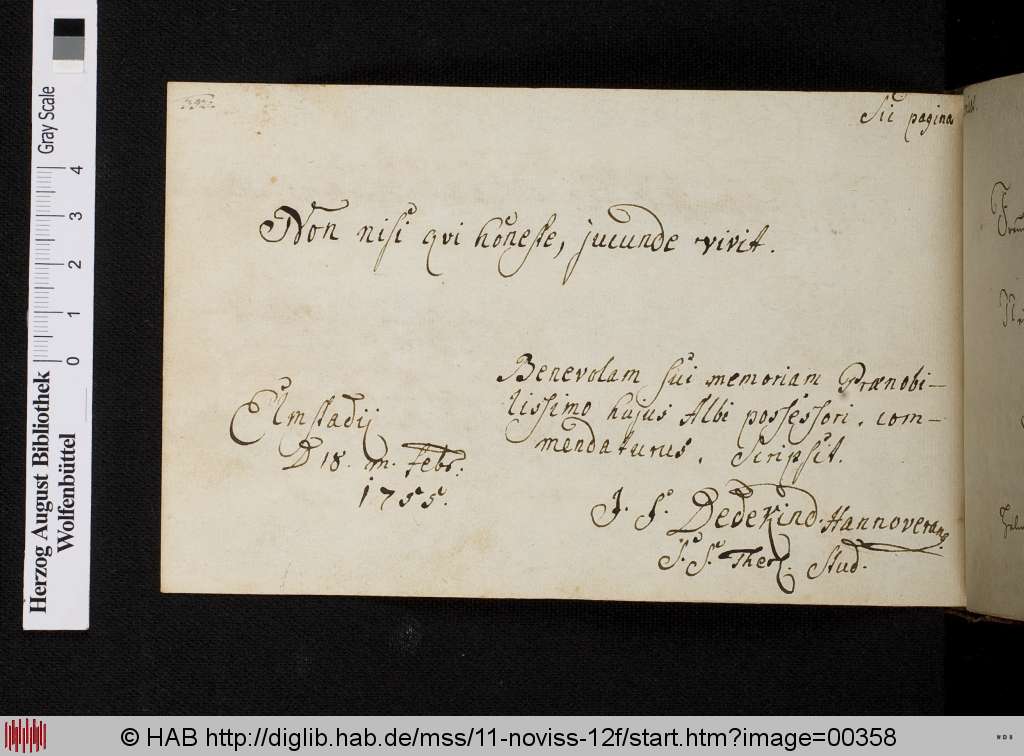 Sic pagina
Non nisi qvi honeste, jucunde vivit.
Benevolam sui memoriam Prænobi-
lissimo hujus Albi possessori, com-
mendaturus, Scripsit.
Elmstadij
D 18. m. Febr.
1755.
J. F. Dedekind. Hannoveranus.
S. S. Theol. Stud.
Herzog August Bibliothek
Wolfenbüttel
0 1 2 3 4
Gray Scale
© HAB http://diglib.hab.de/mss/11-noviss-12f/start.htm?image=00358